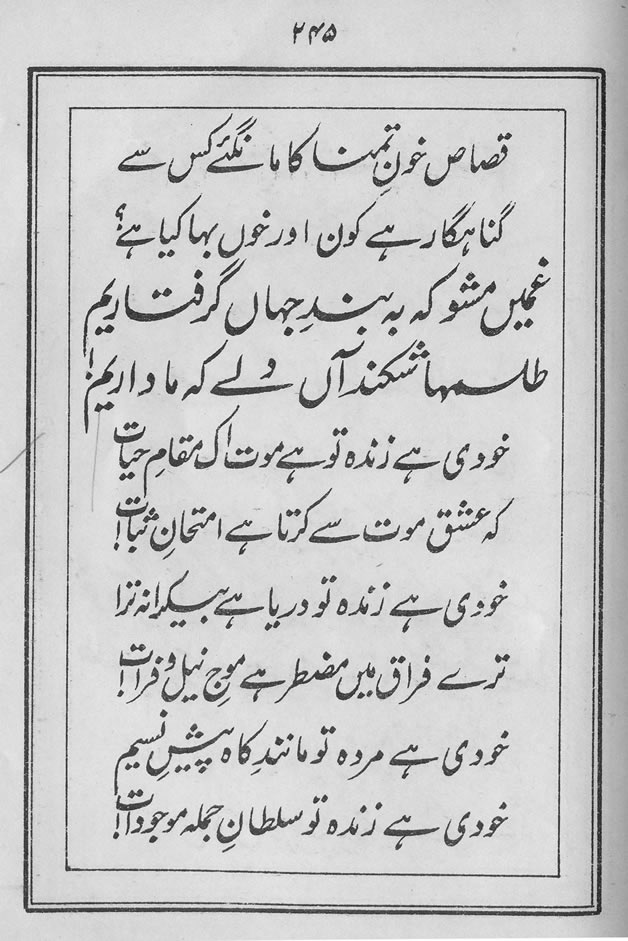 ۲۴۵
قصاص خونِ تمنا کا مانگئے کس سے
گناہگار ہے کون اور خوں بہا کیا ہے؟
غمیں مشو کہ بہ بندِ جہاں گرفتاریم
طلسمہا شکند آں دلے کہ ما داریم!
خودی ہے زندہ تو ہے موت اک مقامِ حیات
کہ عشق موت سے کرتا ہے امتحانِ ثبات!
خودی ہے زندہ تو دریا ہے بیکرانہ ترا
ترے فراق میں مضطر ہے موجِ نیل و فرات!
خودی ہے مردہ تو مانندِ کاہ پیشِ نسیم
خودی ہے زندہ تو سلطانِ جملہ موجودات!